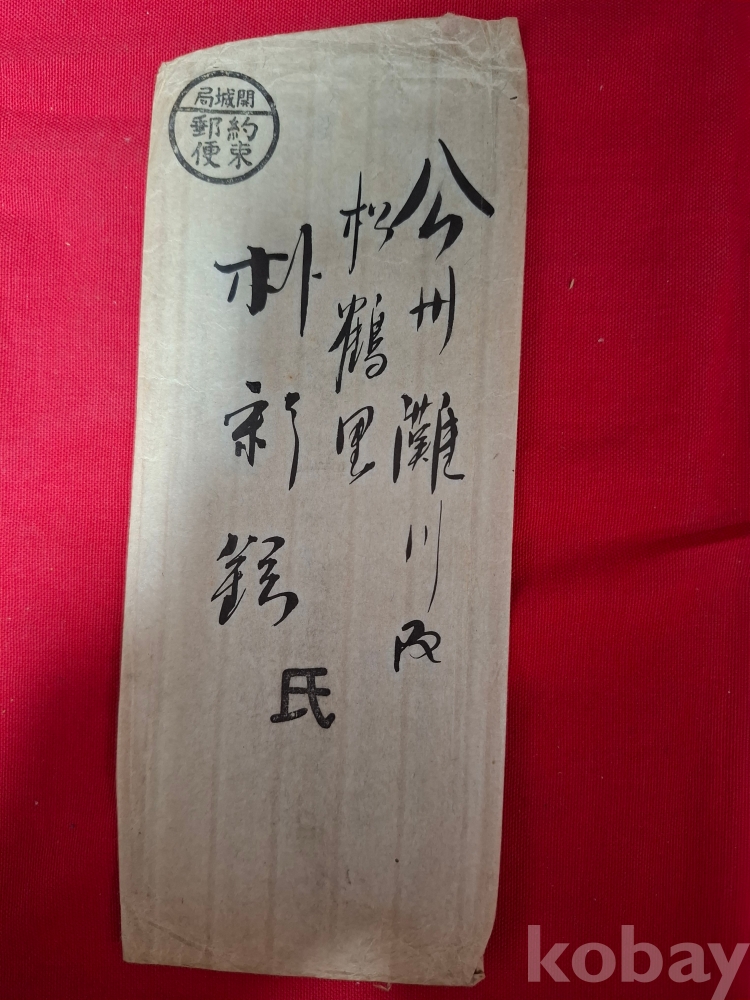 開城局
約束
郵便
公州灘川面
松鶴里
朴新
氏
kobay